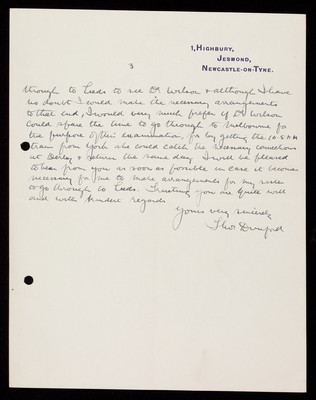 1, HIGHBURY,
JESMOND,
NEWCASTLE-ON-TYNE.
3
through to Leeds to see Dr Wilson & although I have
no doubt I could make the necessary arrangements
to that end, I would very much prefer if Dr Wilson
could spare the time to go through to Melbourne for
the purpose of this examination, for by getting the 10.5 AM
train from York she could catch the necessary connections
at Derby & return the same day. I will be pleased
to hear from you as soon as possible in case it becomes
necessary for me to make arrangements for my sister
to go through to Leeds. Trusting you are quite well
and with kindest regards
Yours very sincerely
Thos